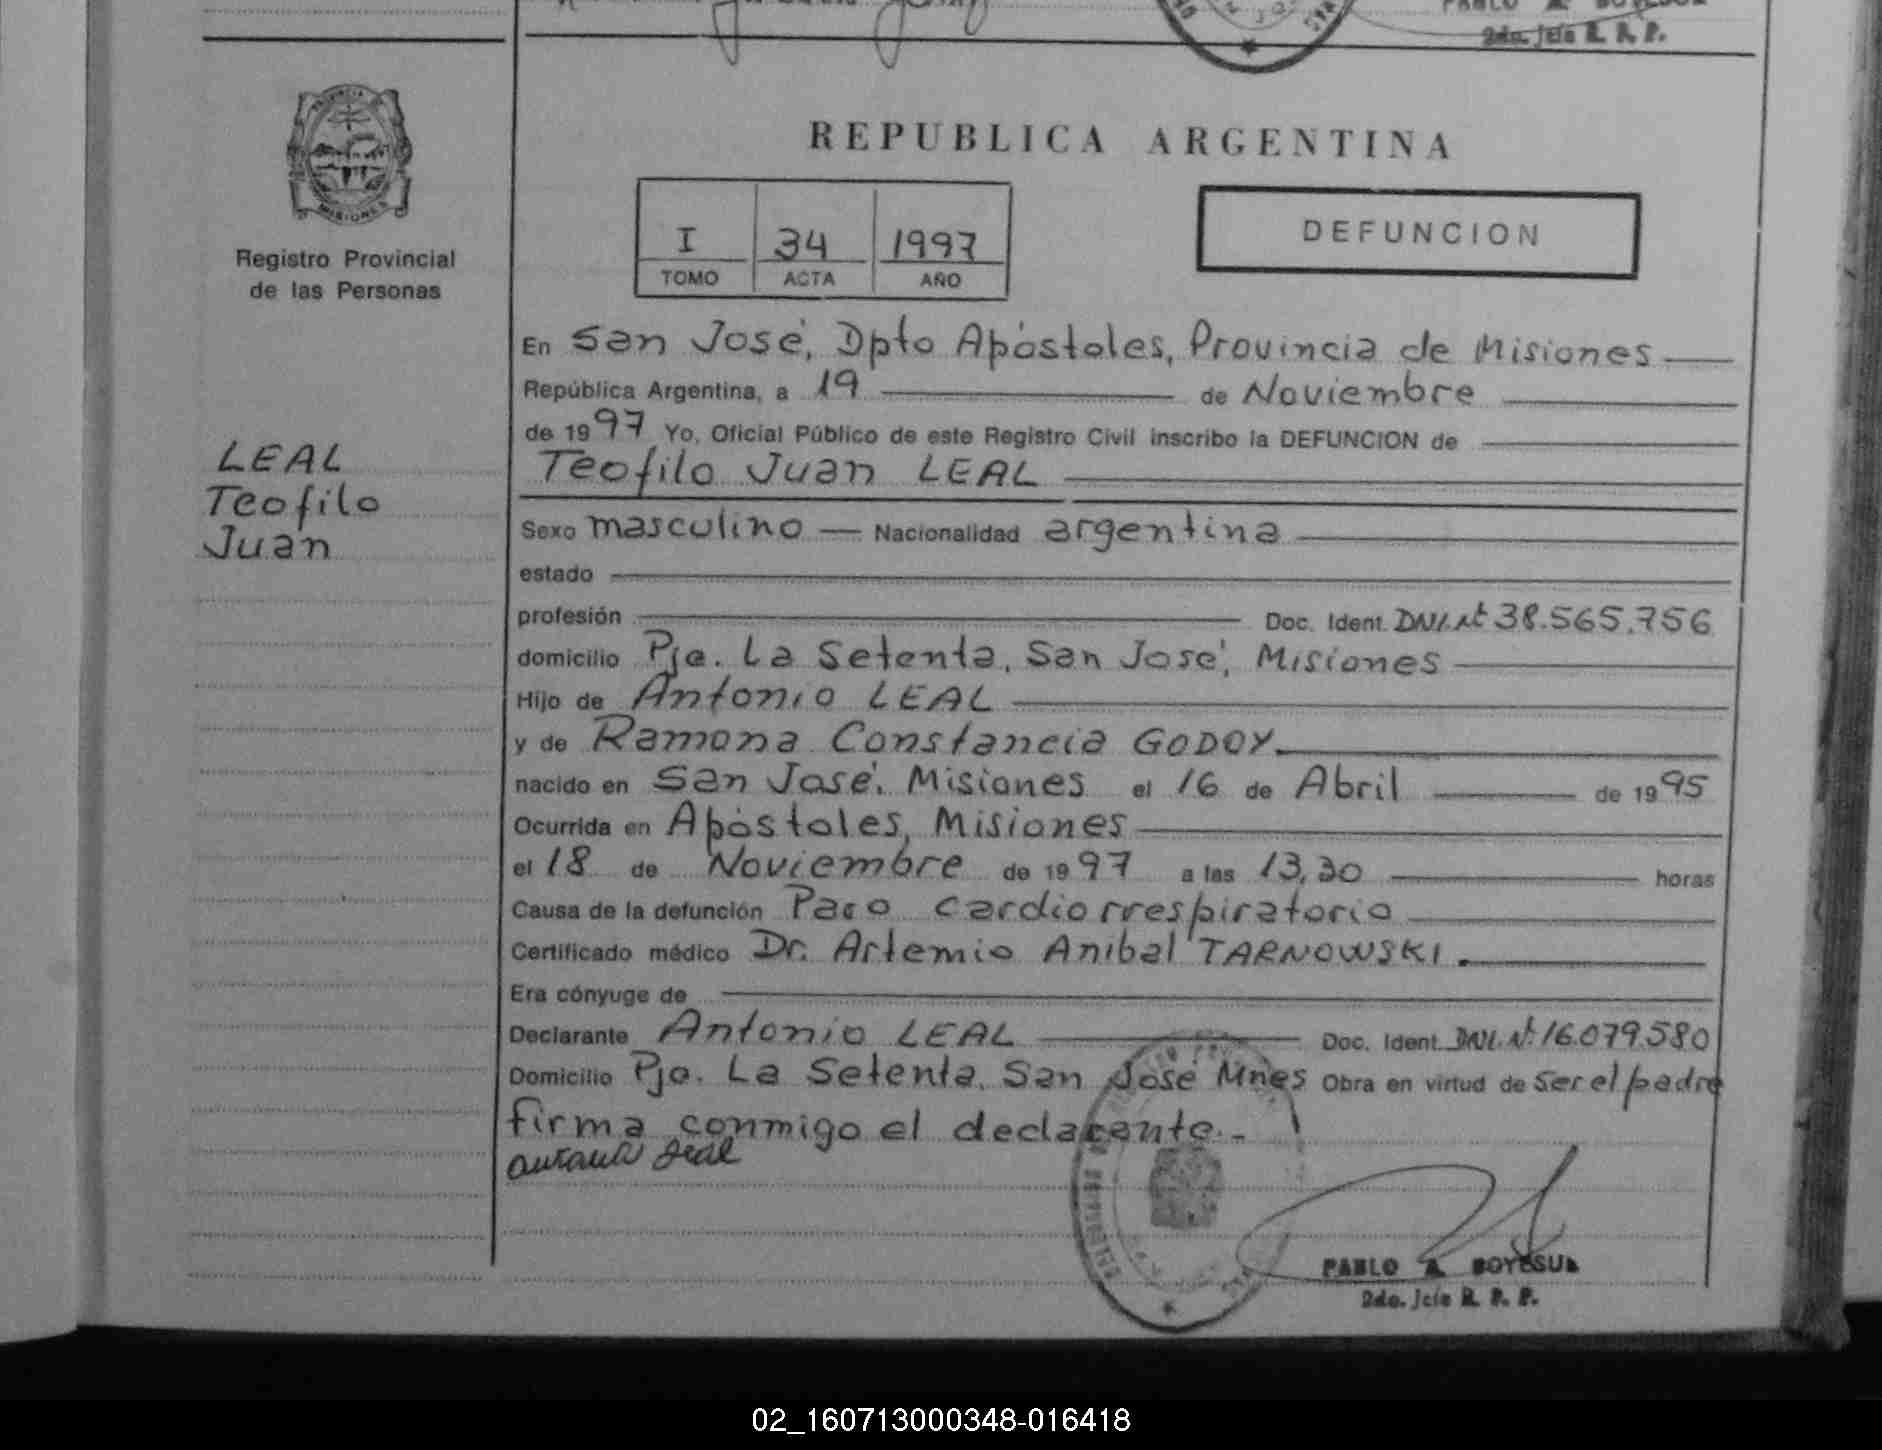 2do. Jefe R. P. P.
PROVINCIA
MISIONES
Registro Provincial
de las Personas
REPUBLICA ARGENTINA
I 34 1997
TOMO ACTA AÑO
DEFUNCION
LEAL
Teofilo
Juan
En San José, Dpto Apóstoles, Provincia de Misiones
República Argentina, a 19 de Noviembre
de 1997 Yo, Oficial Público de este Registro Civil inscribo la DEFUNCION de
Teofilo Juan LEAL
Sexo masculino — Nacionalidad argentina
estado
profesión Doc. Ident. DNI. Nº 38.565.756
domicilio Pje. La Setenta, San José, Misiones
Hijo de Antonio LEAL
y de Ramona Constancia GODOY.
nacido en San José. Misiones el 16 de Abril de 1995
Ocurrida en Apóstoles, Misiones
el 18 de Noviembre de 1997 a las 13,30 horas
Causa de la defunción Paro cardiorrespiratorio
Certificado médico Dr. Artemio Anibal TARNOWSKI.
Era cónyuge de
Declarante Antonio LEAL Doc. Ident. DNI. Nº 16.079.580
Domicilio Pje. La Setenta, San José Mnes Obra en virtud de ser el padre
firma conmigo el declarante.-
PABLO A.
2do. Jefe R. P. P.
02_160713000348-016418